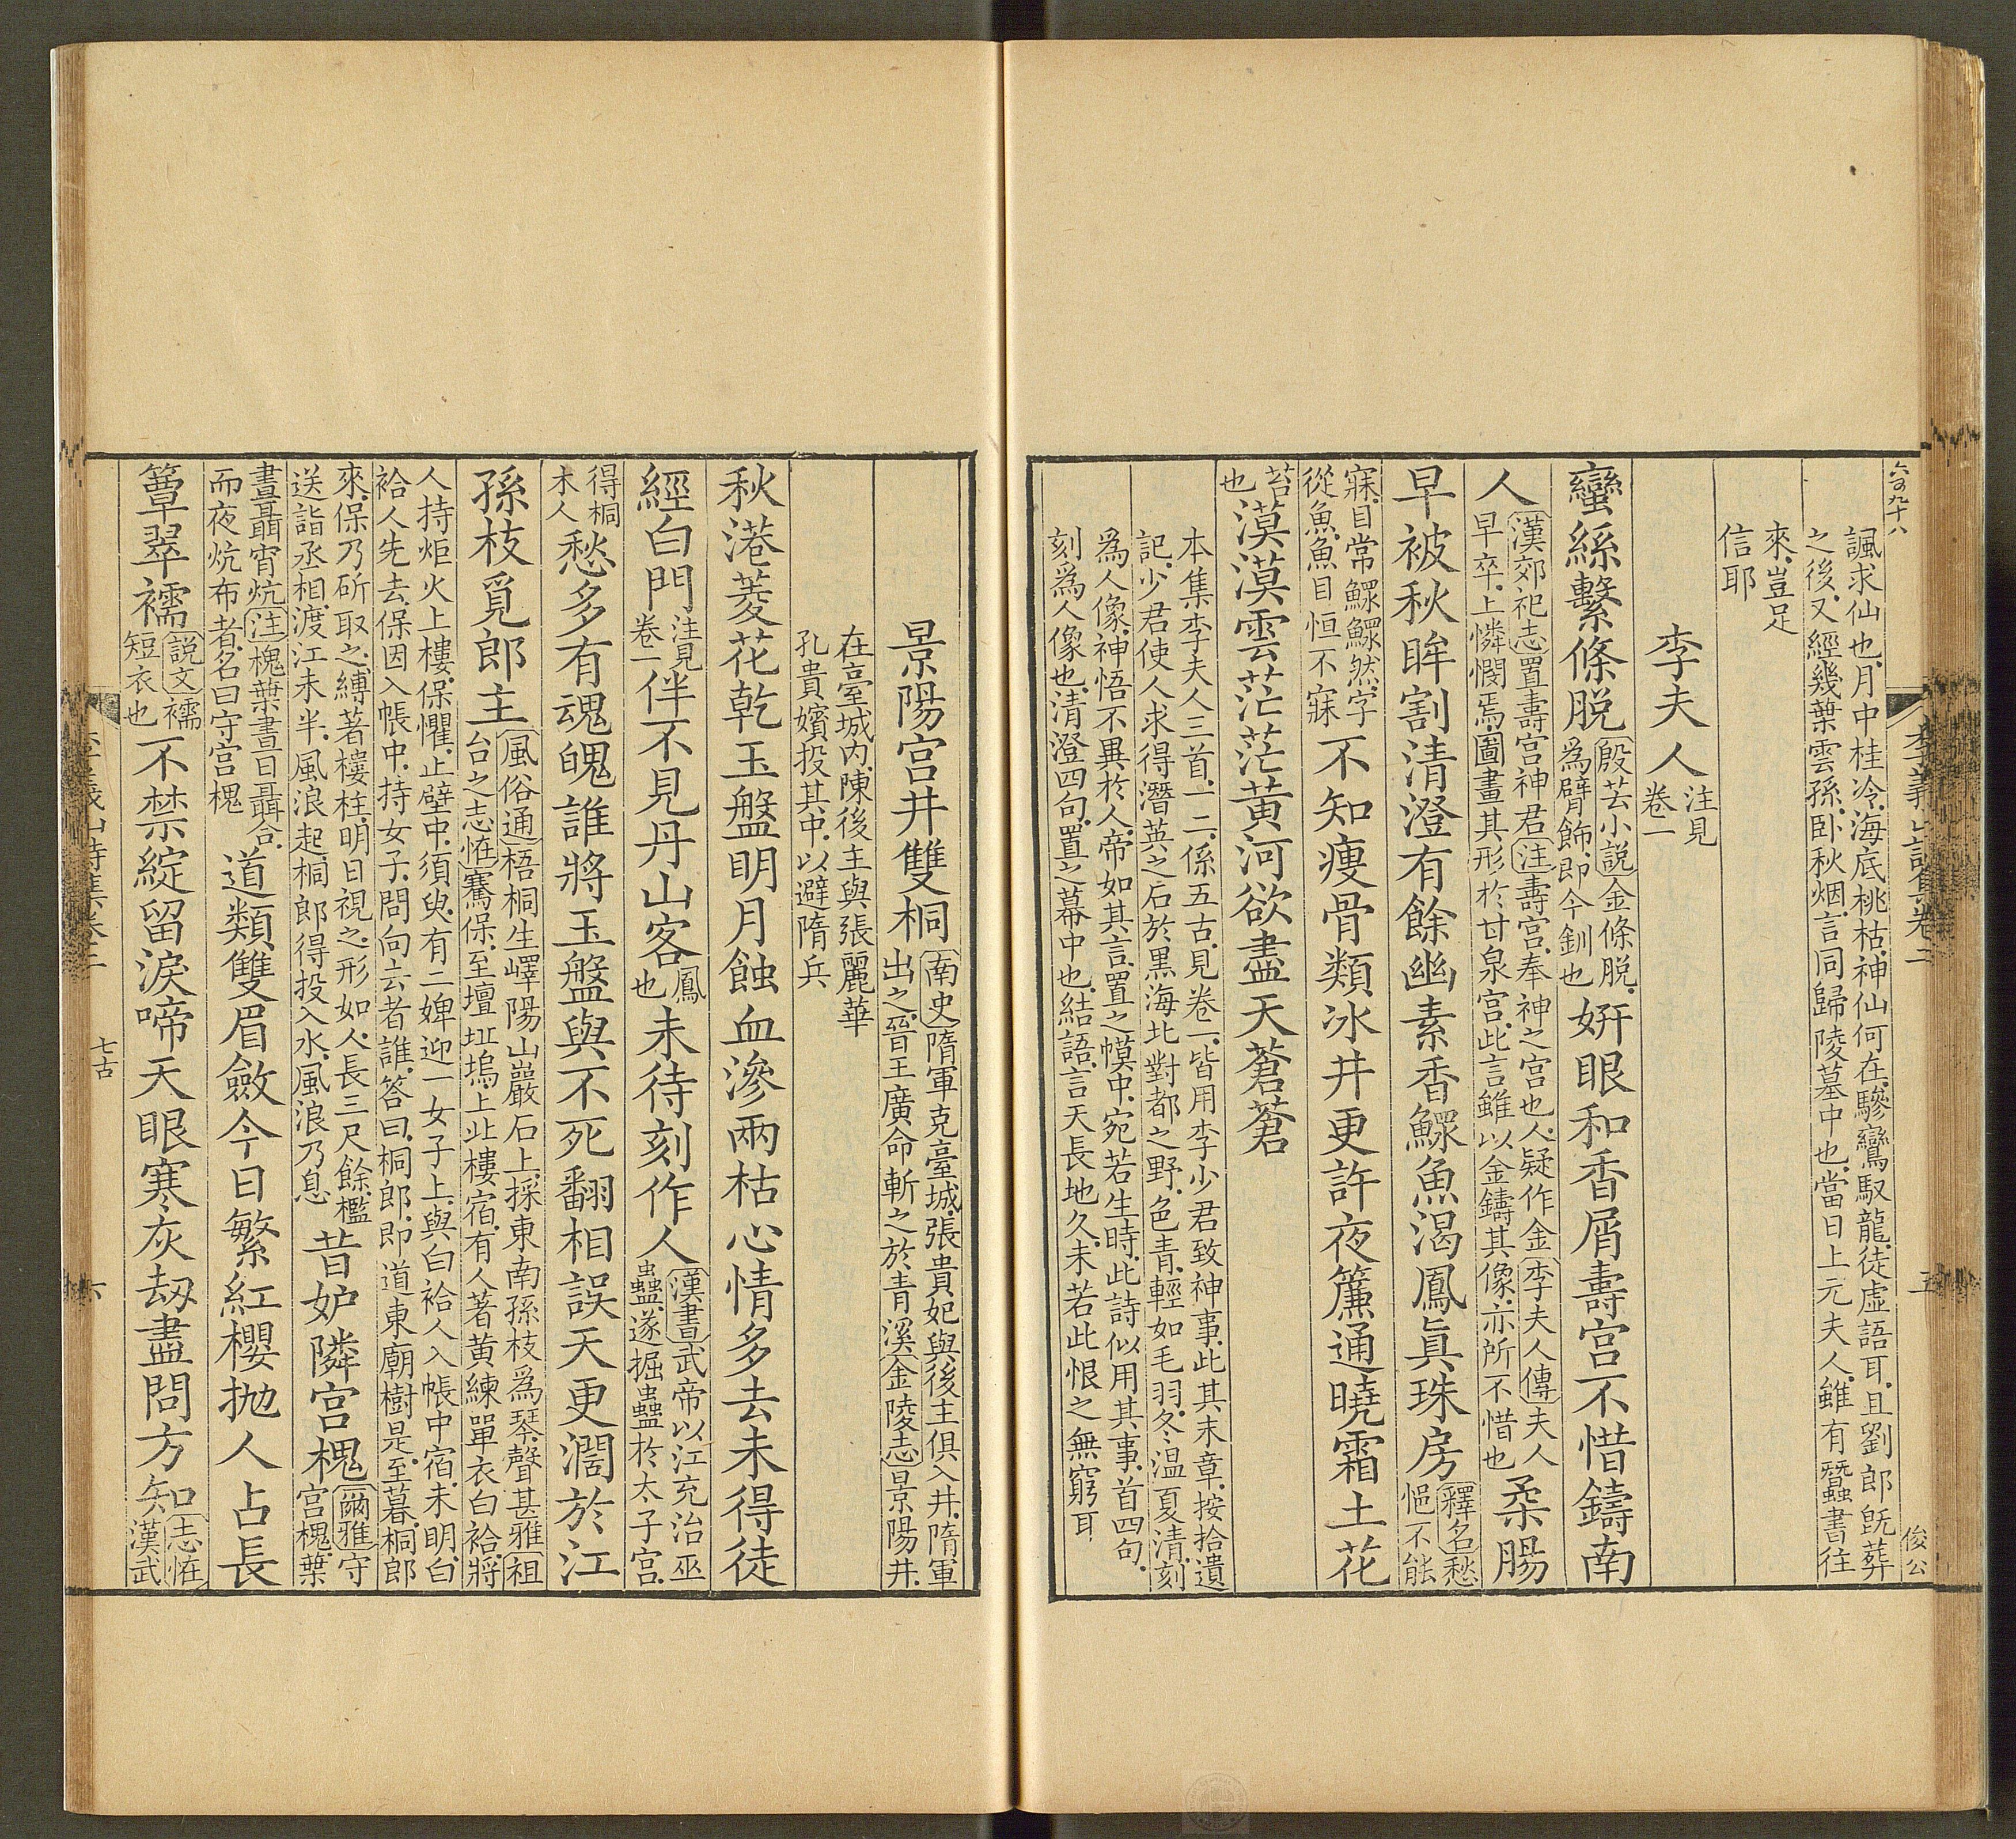 六百九十八
李義山詩集卷二
五
俊公
諷求仙也月中桂冷海底桃枯神仙何在驂鸞馭龍徒虛語耳且劉郎旣葬
之後又經幾葉雲孫臥秋烟言同歸陵墓中也當日上元夫人雖有蠶書往
來豈足
信耶
李夫人
注見
卷一
蠻絲繫條脱
殷芸小說金條脱
爲臂飾即今釧也
妍眼和香屑壽宮不惜鑄南
人
漢郊祀志置壽宮神君注壽宮奉神之宮也人疑作金李夫人傳夫人
早卒上憐憫焉圖畫其形於甘泉宮此言雖以金鑄其像亦所不惜也
柔腸
早被秋眸割清澄有餘幽素香鰥魚渴鳳眞珠房
釋名愁
悒不能
寐目常鰥鰥然字
從魚魚目恒不寐
不知瘦骨類冰井更許夜簾通曉霜土花
漠漠雲茫茫黄河欲盡天蒼蒼
苔
也
本集李夫人三首一二係五古見卷一皆用李少君致神事此其末章按拾遺
記少君使人求得潛英之石於黒海北對都之野色青輕如毛羽冬溫夏清刻
爲人像神悟不異於人帝如其言置之幙中宛若生時此詩似用其事首四句
刻爲人像也清澄四句置之幕中也結語言天長地久未若此恨之無窮耳
景陽宮井雙桐
南史隋軍克臺城張貴妃與後主俱入井隋軍
出之晉王廣命斬之於青溪金陵志景陽井
在臺城内陳後主與張麗華
孔貴嬪投其中以避隋兵
秋港菱花乾玉盤明月蝕血滲兩枯心情多去未得徒
經白門
注見
卷一
伴不見丹山客
鳳
也
未待刻作人
漢書武帝以江充治巫
蠱遂掘蠱於太子宮
得桐
木人
愁多有魂魄誰將玉盤與不死翻相誤天更濶於江
孫枝覓郎主
風俗通梧桐生嶧陽山巖石上採東南孫枝爲琴聲甚雅祖
台之志怪騫保至壇埡塢上北樓宿有人著黄練單衣白袷將
人持炬火上樓保懼止壁中須臾有二婢迎一女子上與白袷人入帳中宿未明白
袷人先去保因入帳中持女子問向去者誰答曰桐郎即道東廟樹是至暮桐郎
來保乃斫取之縛著樓柱明日視之形如人長三尺餘檻
送詣丞相渡江未半風浪起桐郎得投入水風浪乃息
昔妒隣宮槐
爾雅守
宮槐葉
晝聶宵炕注槐葉晝日聶合
而夜炕布者名曰守宮槐
道類雙眉斂今日繁紅櫻抛人占長
簟翠襦
說文襦
短衣也
不禁綻留淚啼天眼寒灰刼盡問方知
志怪
漢武
李義山詩集卷二
七古
六